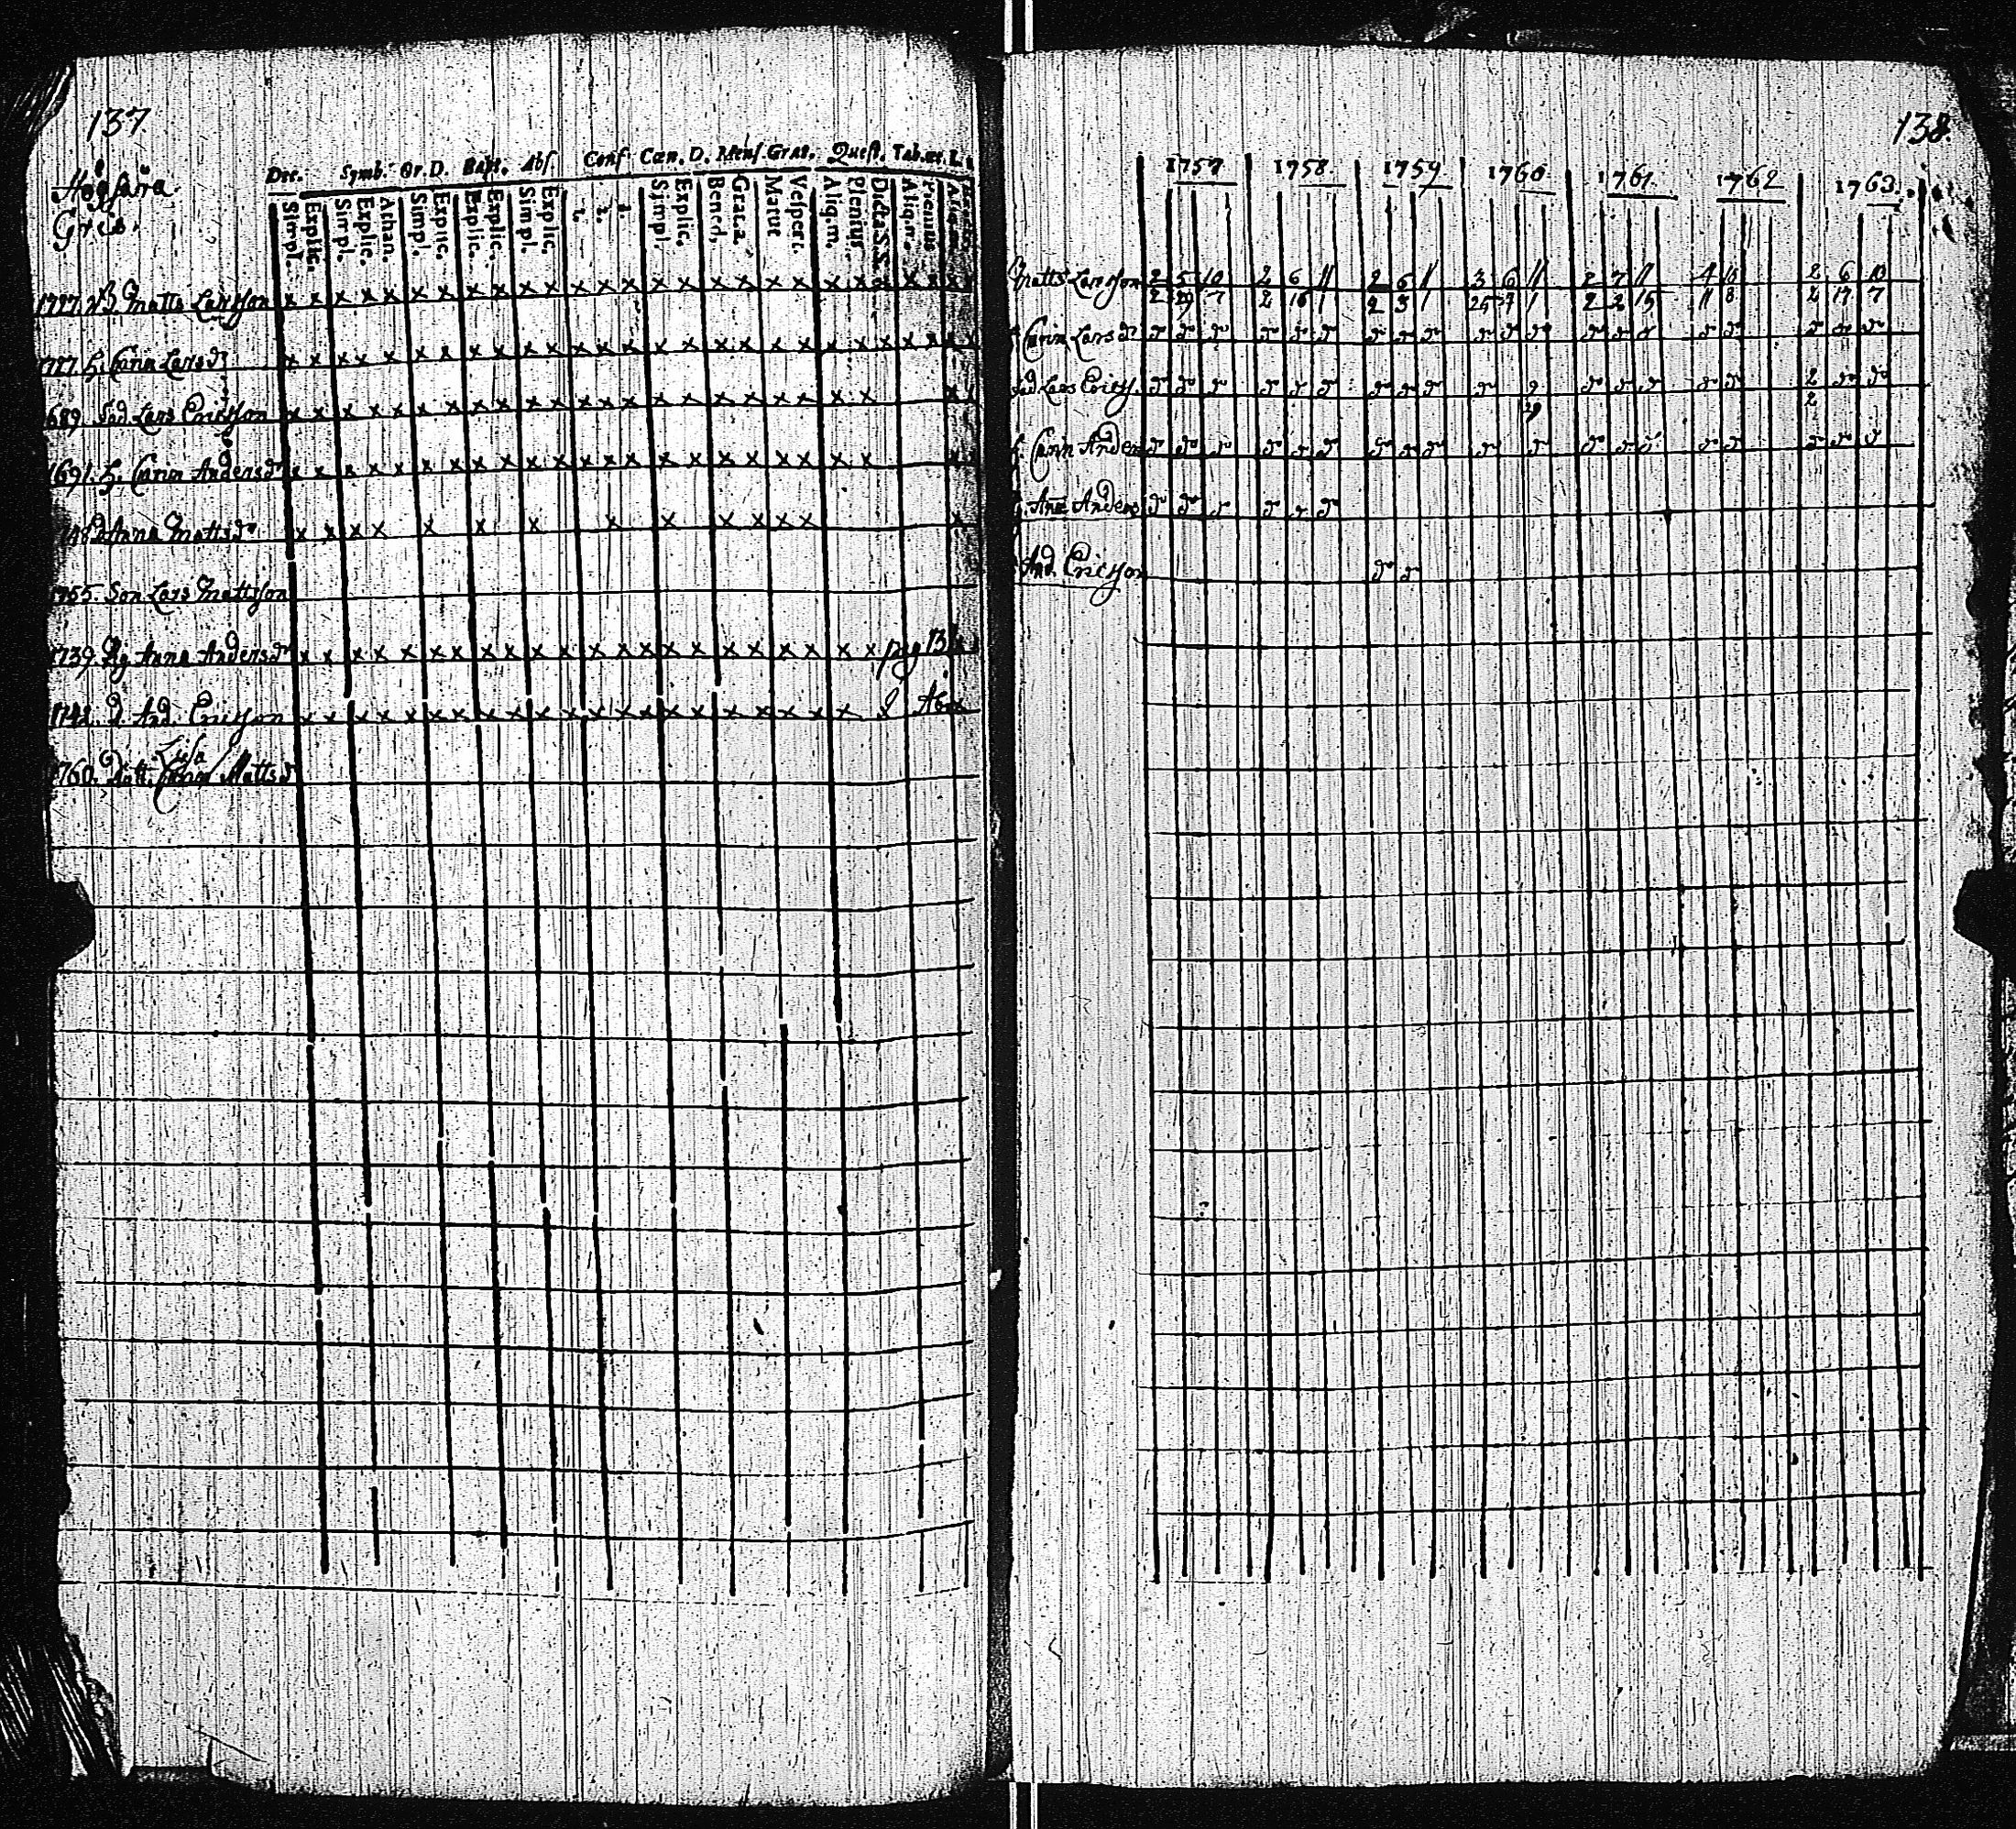 137
Högsåra
Grels.
Dec. Symb. Or. D. Bapt. Abs. Conf. Cœn. D. Mens. Grat. Quest. Tab. œc.
Simpl. Explic. Simpl. Explic. Athan. Simpl. Explic. Explic. Explic. Simpl. Explic. 1. 2. 3. Simpl. Explic. Bened. Grat. a. Matut Vespert. Aliq. m. Plenius Dicta S. S. Aliq. m. Plenius
1727. Matts Larsson x x x x x x x x x x x x x x x x x x x x x x x x x x
1727. h. Carin Larsdr x x x x x x x x x x x x x x x x x x x x x x x x x x
1689. Lars Ericsson x x x x x x x x x x x x x x x x x x x x x x x x
1691. h. Carin Andersdr x x x x x x x x x x x x x x x x x x x x x x x x
48 Anna Mattsdr x x x x x x x x x x x x x x
1755. Son Lars Mattsson
1739. Pig Anna Andersdr x x x x x x x x x x x x x x x x x x x x x x pag
1742. D. And. Ericsson x x x x x x x x x x x x x x x x x x x x x Abo
1760. Dott. Lisa Mattsdr
138.
1757 1758 1759 1760 1761 1762 1763
Matts Larsson 2 5 10 2 6 11 2 6 11 3 6 11 2 7 11 4 10 2 6 10
2 29 7 2 16 1 2 3 1 25 7 1 2 2 15 11 8 2 17 7
Carin Larsdr dr dr dr dr dr dr dr dr dr dr dr dr dr dr dr dr dr dr dr dr
Lars Ericss. dr dr dr dr dr dr dr dr dr dr 2 dr dr dr dr dr 2 dr dr
29 2
h. Carin Anders dr dr dr dr dr dr dr dr dr dr dr dr dr dr dr dr dr dr dr
Anna Anders dr dr dr dr dr dr
And. Ericsson dr dr